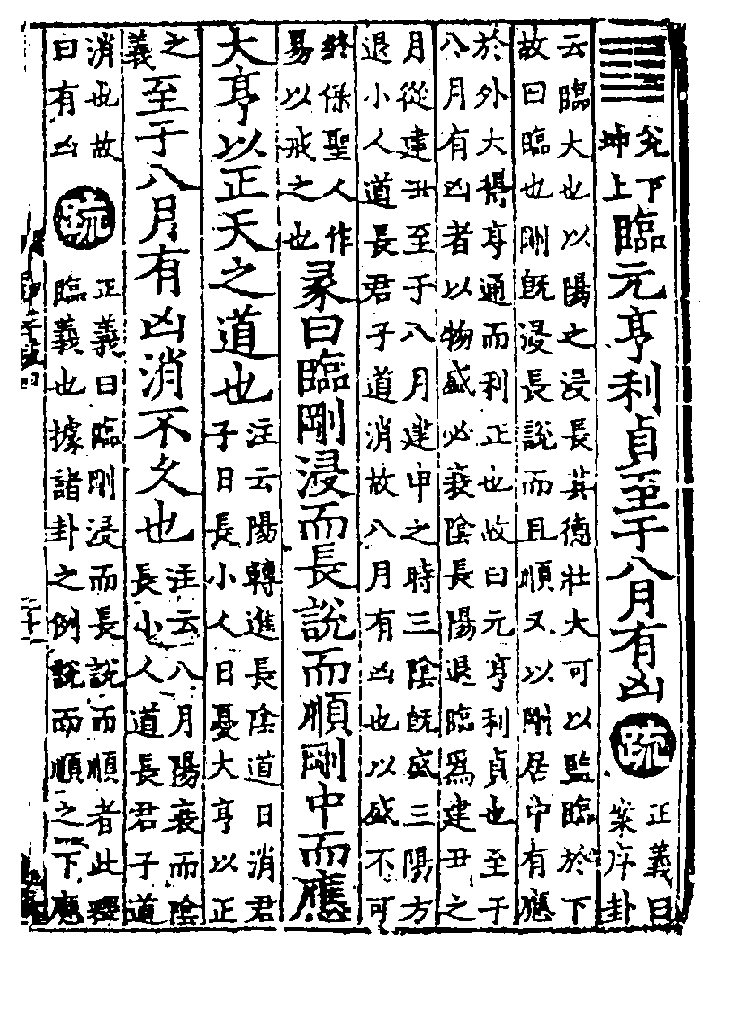 ䷒兌下坤上臨元亨利貞至于八月有凶疏正義曰案序卦
云臨大也以陽之浸長其德壯大可以監臨於下
故曰臨也剛旣浸長說而且順又以剛居中有應
於外大得亨通而利正也故曰元亨利貞也至于
八月有凶者以物盛必衰陰長陽退臨爲建丑之
月從建丑至于八月建申之時三陰旣盛三陽方
退小人道長君子道消故八月有凶也以盛不可
終保聖人作易以戒之也彖曰臨剛浸而長說而順剛中而應
大亨以正天之道也注云陽轉進長陰道日消君子日長小人日憂大亨以正
之義至于八月有凶消不久也注云八月陽衰而陰長小人道長君子道
消也故曰有凶疏正義曰臨剛浸而長說而順者此釋臨義也據諸卦之例說而順之下應